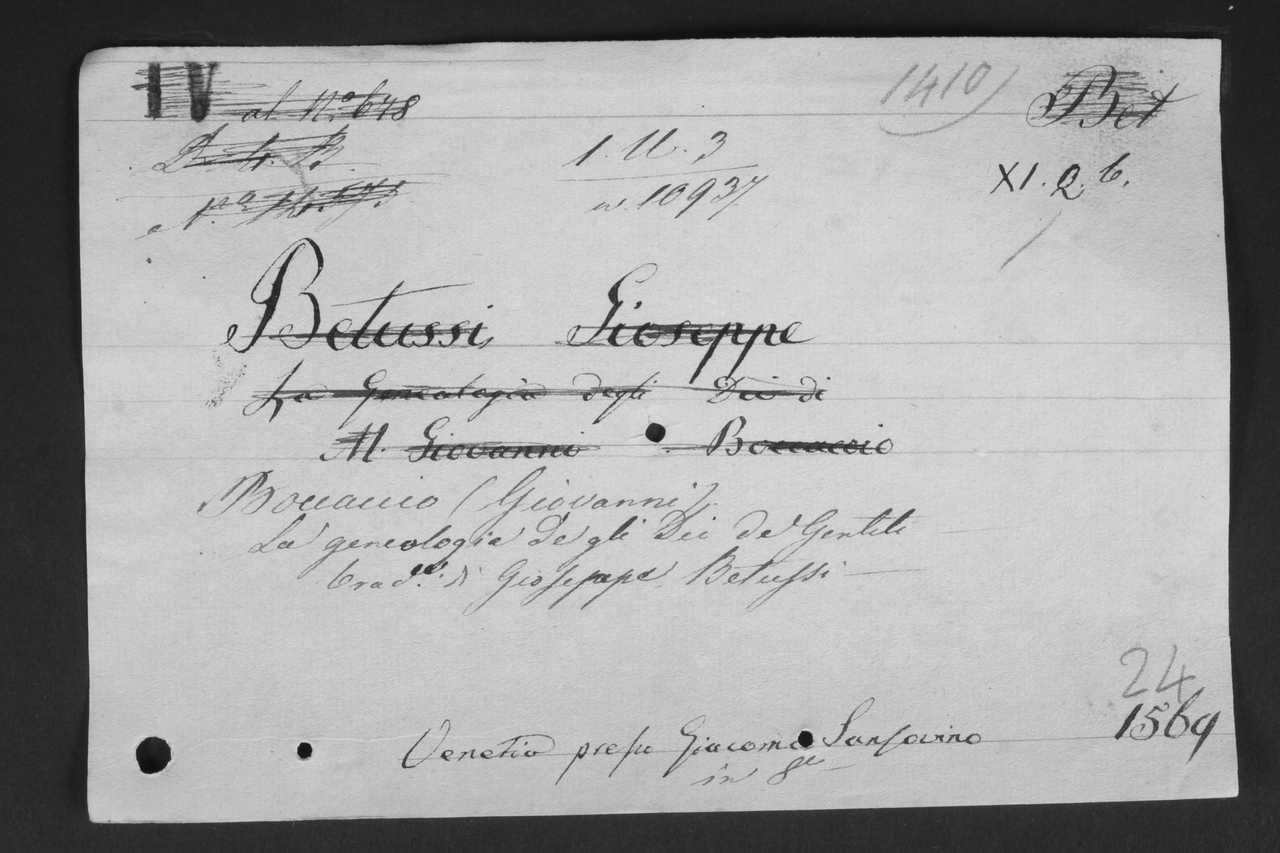 IV al N.º 648
1410)
Bet
1. U. 3
XI. Q. 6.
10937
Betussi Gioseppe
La Geneologia degli Dei di
M. Giovanni Boccaccio
Boccaccio (Giovanni)
La geneologia degli Dei de' Gentili
trad.ne di Gioseppe Betussi
24
1569
Venetia presso Giacomo Sansovino
in 8º